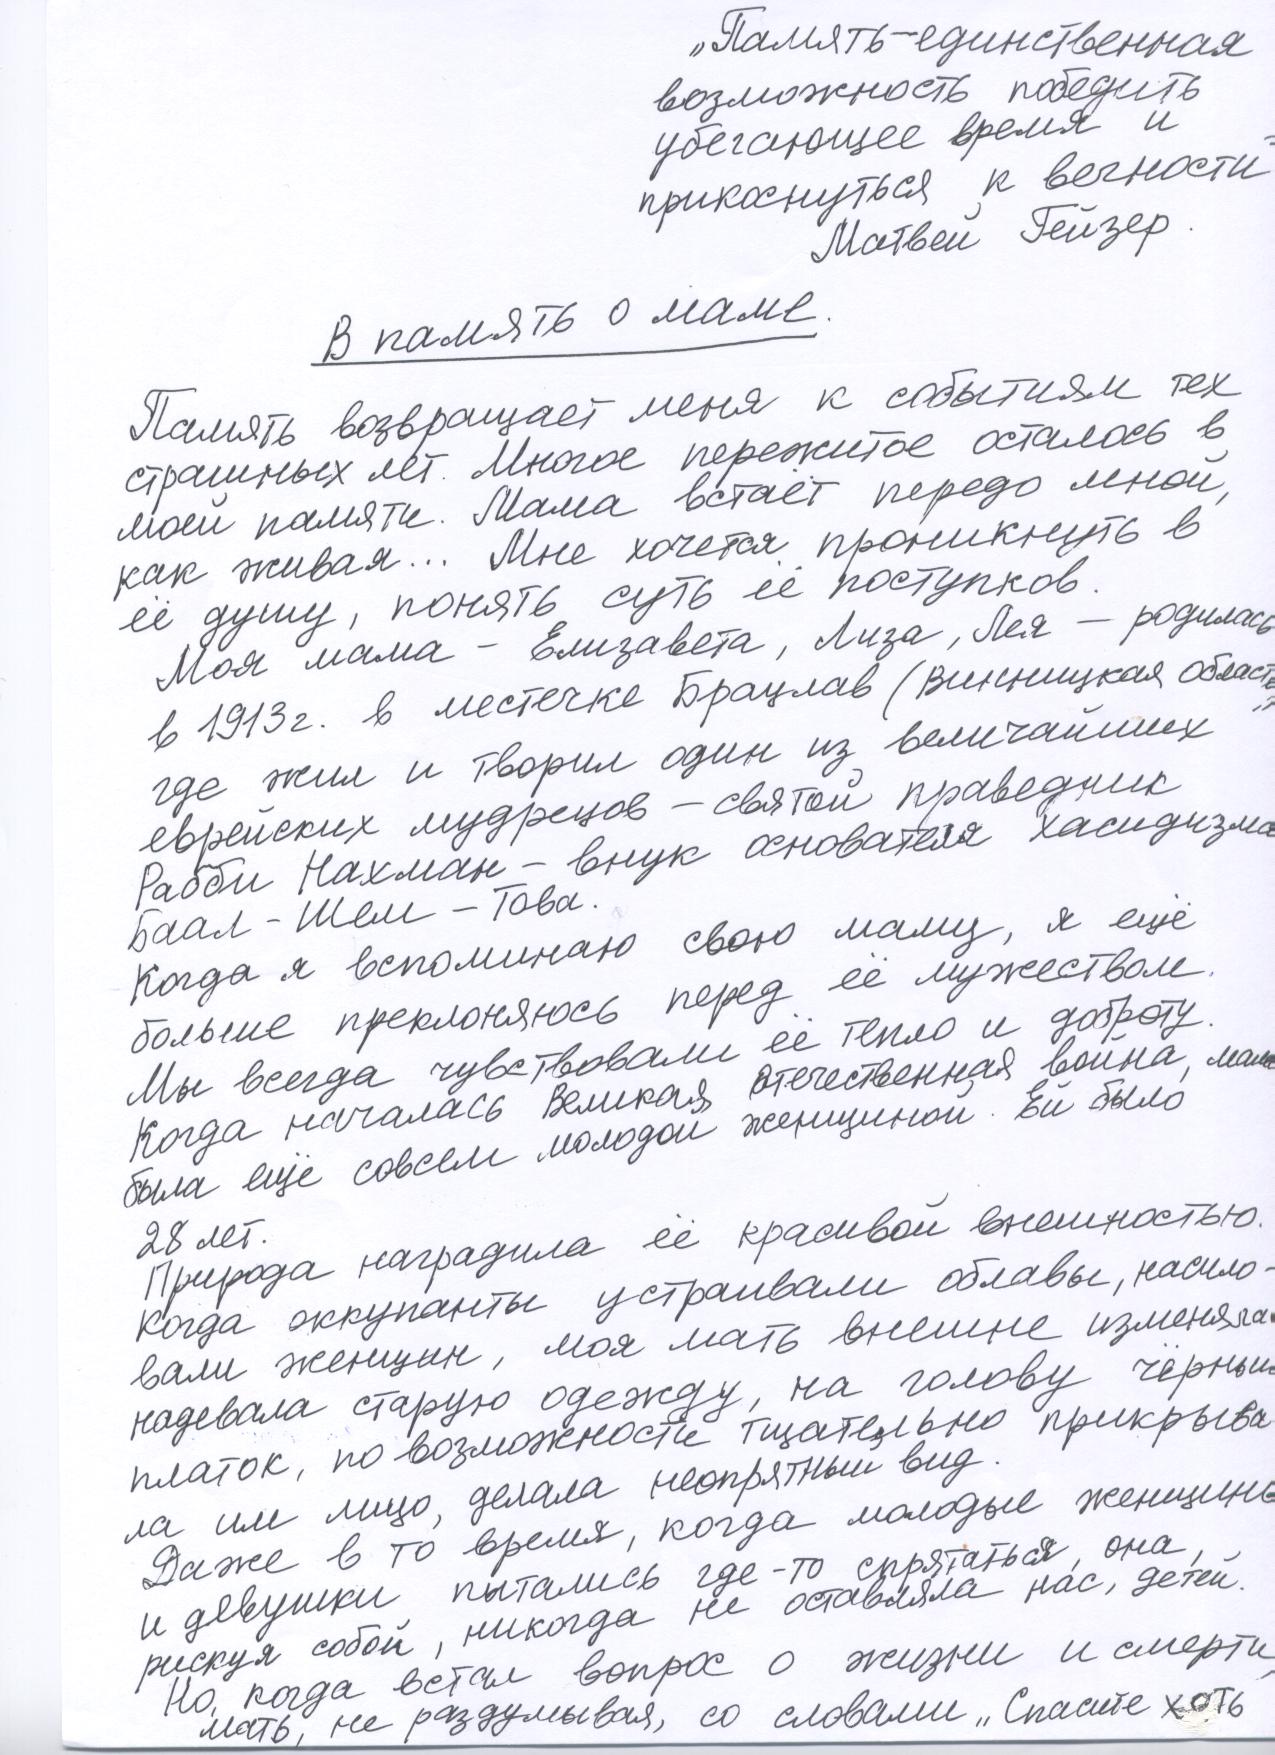 „Память-единственная
возможность победить
убегающее время и
прикоснуться к вечности"
Матвей Гейзер.
В память о маме.
Память возвращает меня к событиям тех
страшных лет. Многое пережитое осталось в
моей памяти. Мама встаёт передо мной,
как живая... Мне хочется проникнуть в
её душу, понять суть её поступков.
Моя мама - Елизавета, Лиза, Лея - родилась
в 1913г. в местечке Брацлав (Винницкая область),
где жил и творил один из величайших
еврейских мудрецов - святой праведник
Рабби Нахман - внук основателя хасидизма
Баал-Шем-Това.
Когда я вспоминаю свою маму, я ещё
больше преклоняюсь перед её мужеством.
Мы всегда чувствовали её тепло и доброту.
Когда началась Великая Отечественная война, мама
была ещё совсем молодой женщиной. Ей было
28 лет.
Природа наградила её красивой внешностью.
Когда оккупанты устраивали облавы, насило-
вали женщин, моя мать внешне изменяла
надевала старую одежду, на голову чёрный
платок, по возможности тщательно прикрыва
ла им лицо, делала неопрятный вид.
Даже в то время, когда молодые женщины
и девушки пытались где-то спрятаться, она,
рискуя собой, никогда не оставляла нас, детей.
Но, когда встал вопрос о жизни и смерти,
мать, не раздумывая, со словами „Спасите хоть